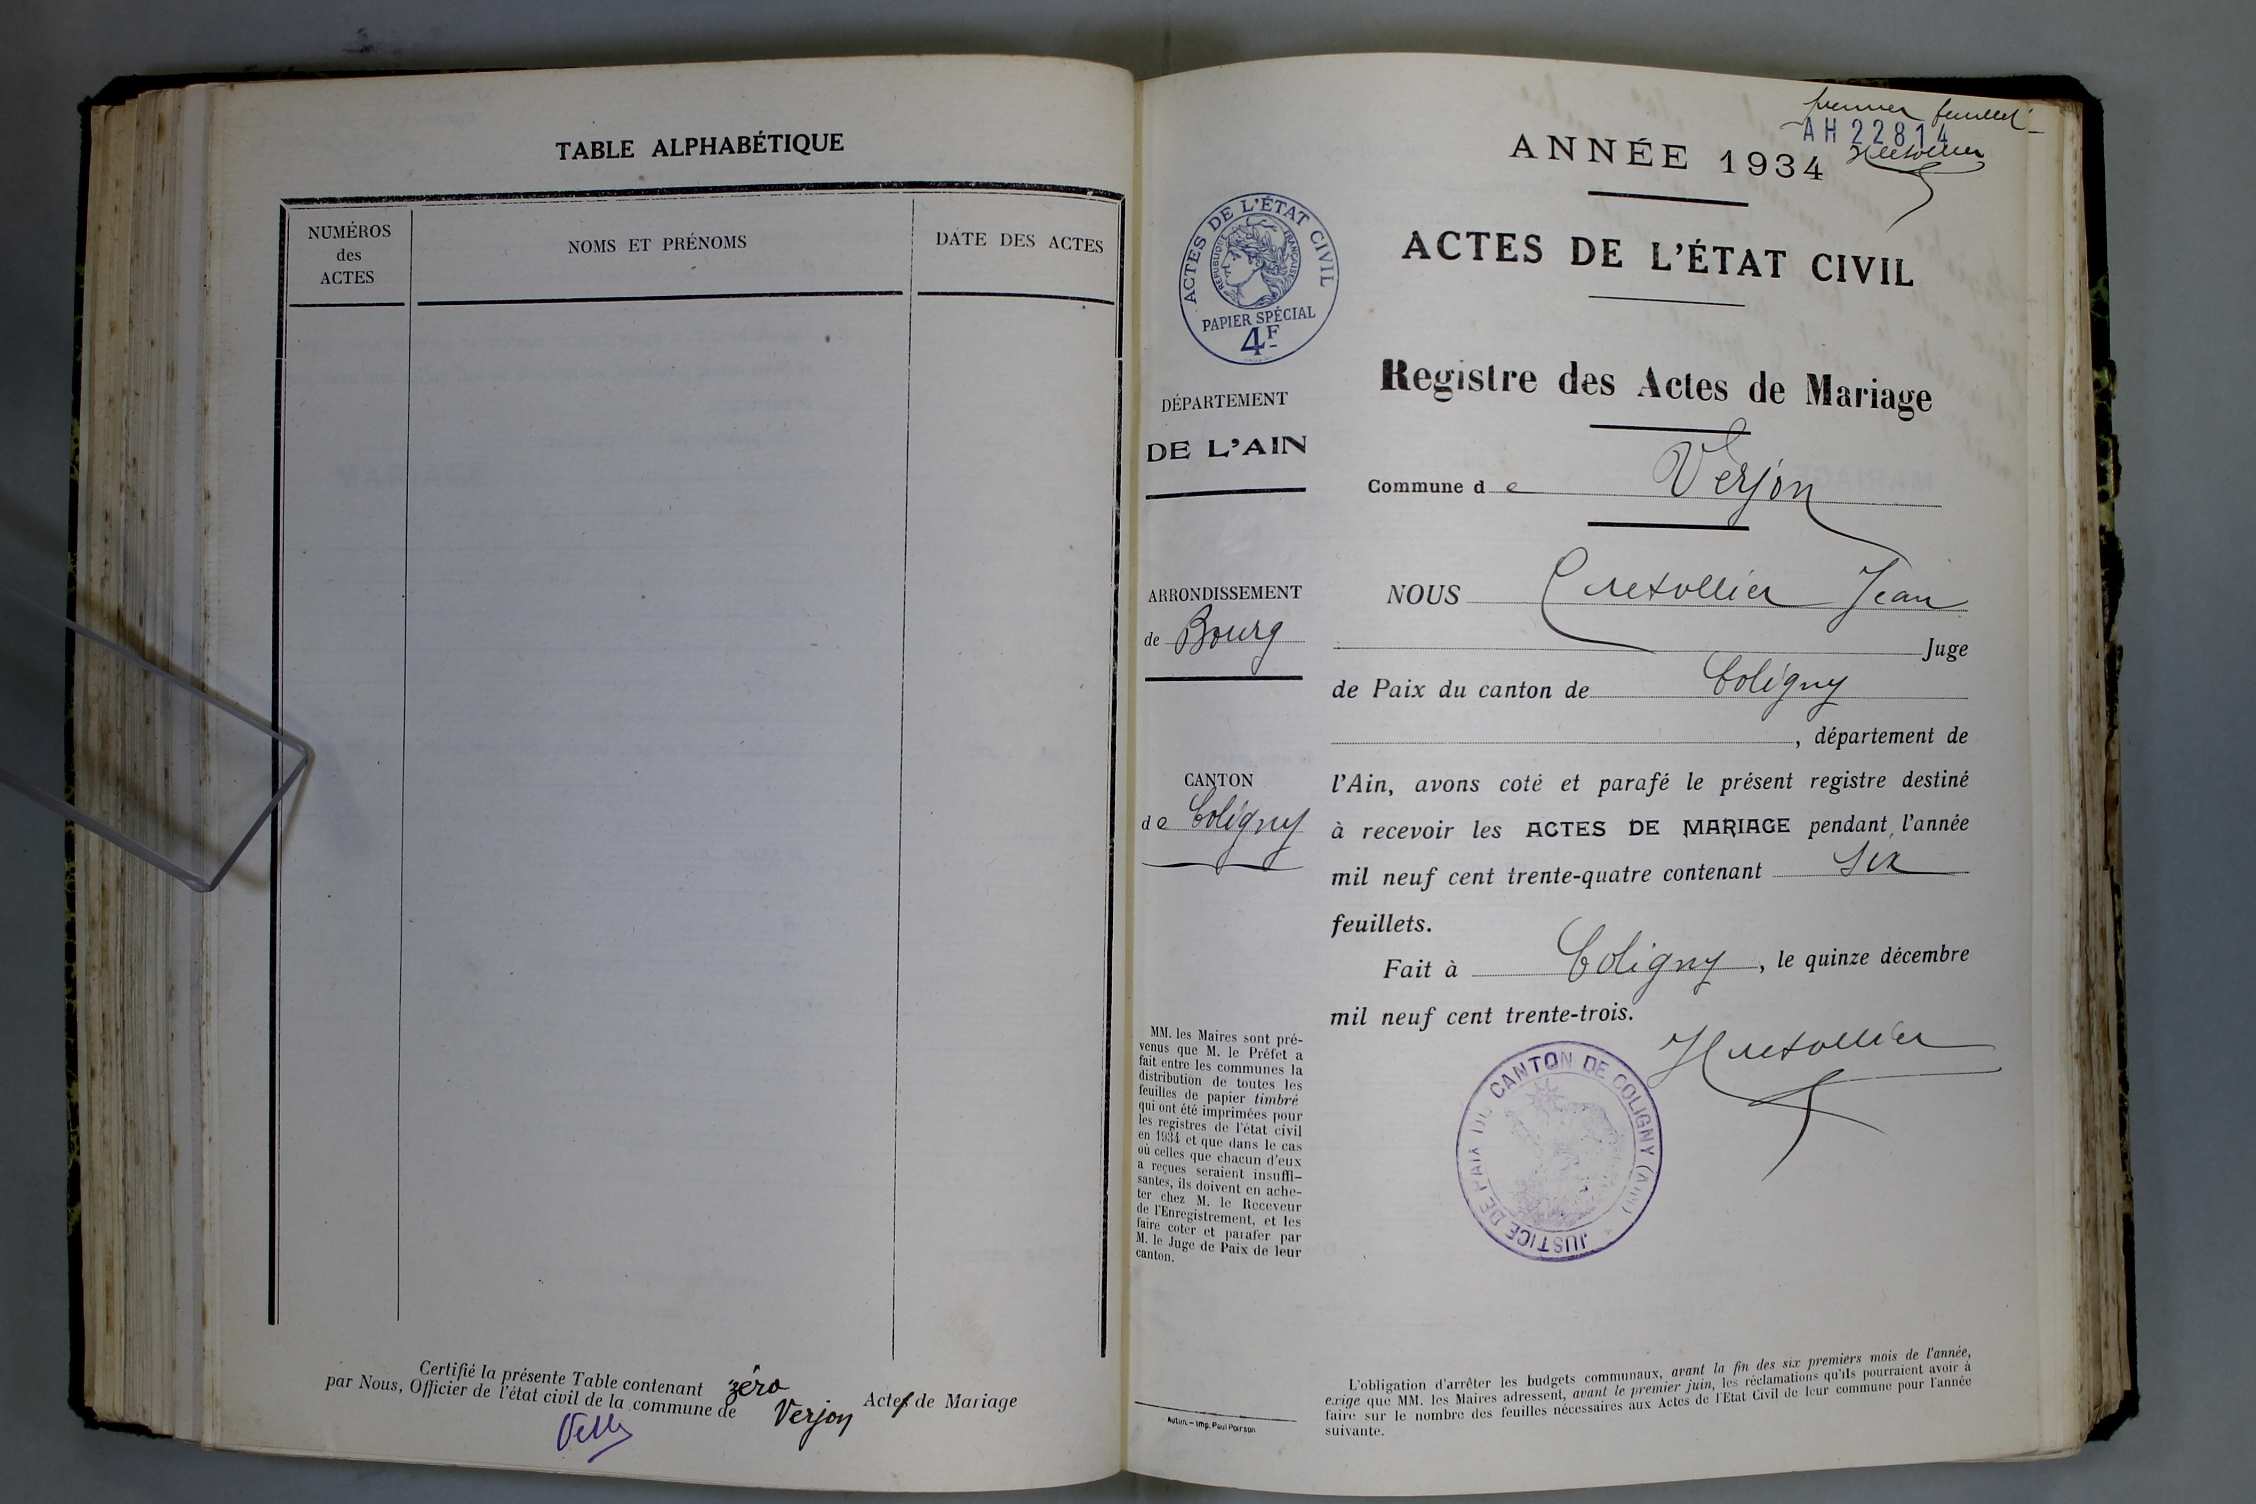 TABLE ALPHABÉTIQUE
NUMÉROS
des
ACTES
NOMS ET PRÉNOMS
DATE DES ACTES
Certifié la présente Table contenant zéro Actes de Mariage
par Nous, Officier de l'état civil de la commune de Verjon
premier feuillet
AH 22814
ANNÉE 1934
ACTES DE L'ÉTAT CIVIL
RÉPUBLIQUE FRANÇAISE
PAPIER SPÉCIAL
4F
ACTES DE L'ÉTAT CIVIL
Registre des Actes de Mariage
DÉPARTEMENT
DE L'AIN
Commune de Verjon
ARRONDISSEMENT
de Bourg
CANTON
de Coligny
NOUS Jean
Juge
de Paix du canton de Coligny
, département de
l'Ain, avons coté et parafé le présent registre destiné
à recevoir les ACTES DE MARIAGE pendant l'année
mil neuf cent trente-quatre contenant six
feuillets.
Fait à Coligny, le quinze décembre
mil neuf cent trente-trois.
JUSTICE DE PAIX DU CANTON DE COLIGNY (AIN)
MM. les Maires sont pré-
venus que M. le Préfet a
fait entre les communes la
distribution de toutes les
feuilles de papier timbré
qui ont été imprimées pour
les registres de l'état civil
en 1934 et que dans le cas
où celles que chacun d'eux
a reçues seraient insuffi-
santes, ils doivent en ache-
ter chez M. le Receveur
de l'Enregistrement, et les
faire coter et parafer par
M. le Juge de Paix de leur
canton.
Autun. – Imp. Paul Poirson
L'obligation d'arrêter les budgets communaux, avant la fin des six premiers mois de l'année,
exige que MM. les Maires adressent, avant le premier juin, les réclamations qu'ils pourraient avoir à
faire sur le nombre des feuilles nécessaires aux Actes de l'Etat Civil de leur commune pour l'année
suivante.